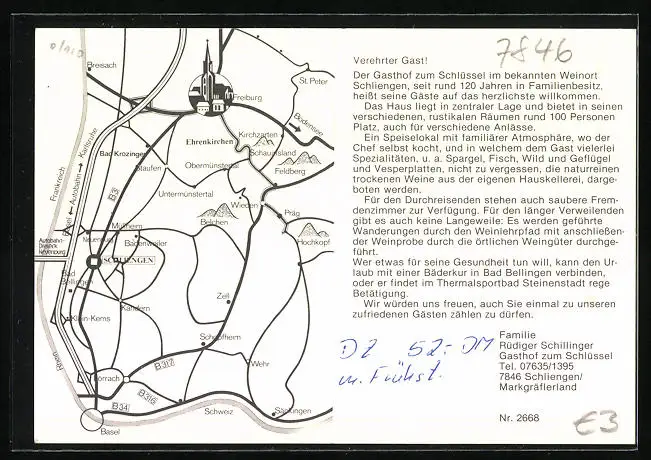 0/010
7846
Breisach
St. Peter
Freiburg
Bodensee
Ehrenkirchen
Kirchzarten
Schauinsland
Bad Krozingen
Staufen
Obermünstertal
Feldberg
Frankreich
Basel ← Autobahn → Karlsruhe
B3
Untermünstertal
Wieden
Präg
Belchen
Müllheim
Neuenburg
Badenweiler
Hochkopf
Autobahn-
Dreieck
Neuenburg
SCHLIENGEN
Bad
Bellingen
Kandern
Zell
Klein-Kems
Schopfheim
Rhein
Lörrach
B317
Wehr
B316
B34
Schweiz
Säckingen
Basel
Verehrter Gast!
Der Gasthof zum Schlüssel im bekannten Weinort
Schliengen, seit rund 120 Jahren in Familienbesitz,
heißt seine Gäste auf das herzlichste willkommen.
Das Haus liegt in zentraler Lage und bietet in seinen
verschiedenen, rustikalen Räumen rund 100 Personen
Platz, auch für verschiedene Anlässe.
Ein Speiselokal mit familiärer Atmosphäre, wo der
Chef selbst kocht, und in welchem dem Gast vielerlei
Spezialitäten, u. a. Spargel, Fisch, Wild und Geflügel
und Vesperplatten, nicht zu vergessen, die naturreinen
trockenen Weine aus der eigenen Hauskellerei, darge-
boten werden.
Für den Durchreisenden stehen auch saubere Frem-
denzimmer zur Verfügung. Für den länger Verweilenden
gibt es auch keine Langeweile: Es werden geführte
Wanderungen durch den Weinlehrpfad mit anschließen-
der Weinprobe durch die örtlichen Weingüter durchge-
führt.
Wer etwas für seine Gesundheit tun will, kann den Ur-
laub mit einer Bäderkur in Bad Bellingen verbinden,
oder er findet im Thermalsportbad Steinenstadt rege
Betätigung.
Wir würden uns freuen, auch Sie einmal zu unseren
zufriedenen Gästen zählen zu dürfen.
DZ 52.- DM
m. Frühst.
Familie
Rüdiger Schillinger
Gasthof zum Schlüssel
Tel. 07635/1395
7846 Schliengen/
Markgräflerland
Nr. 2668
€3